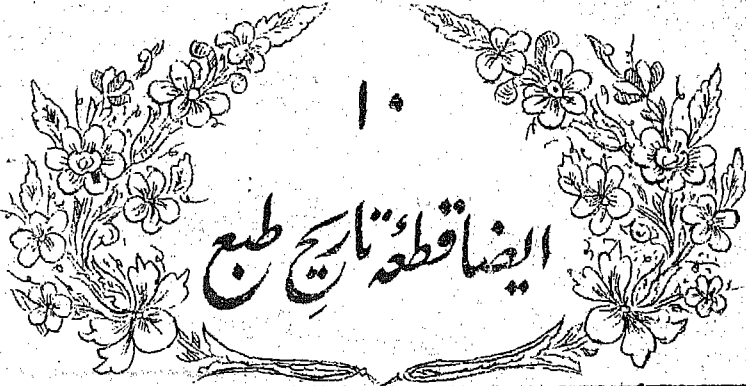 ۱۰
ایضاً قطعۂ تاریخ طبع